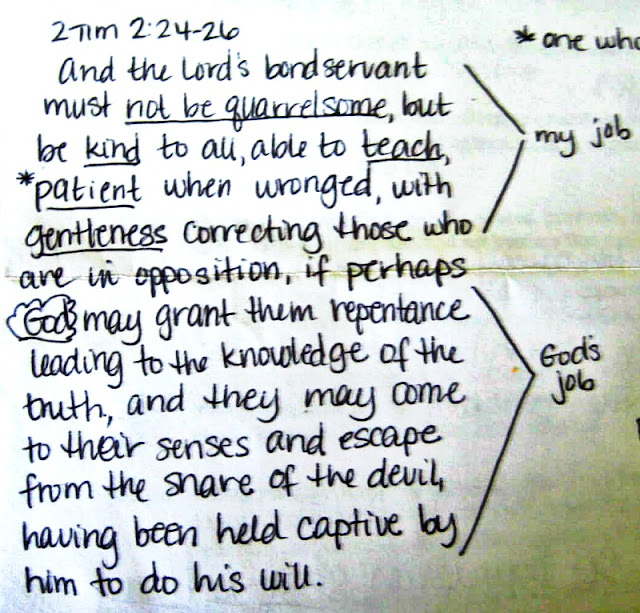 2 Tim 2:24-26
* one who
and the Lord's bondservant
must not be quarrelsome, but
be kind to all, able to teach,
my job
*patient when wronged, with
gentleness correcting those who
are in opposition, if perhaps
God may grant them repentance
leading to the knowledge of the
God's
job
truth, and they may come
to their senses and escape
from the snare of the devil,
having been held captive by
him to do his will.